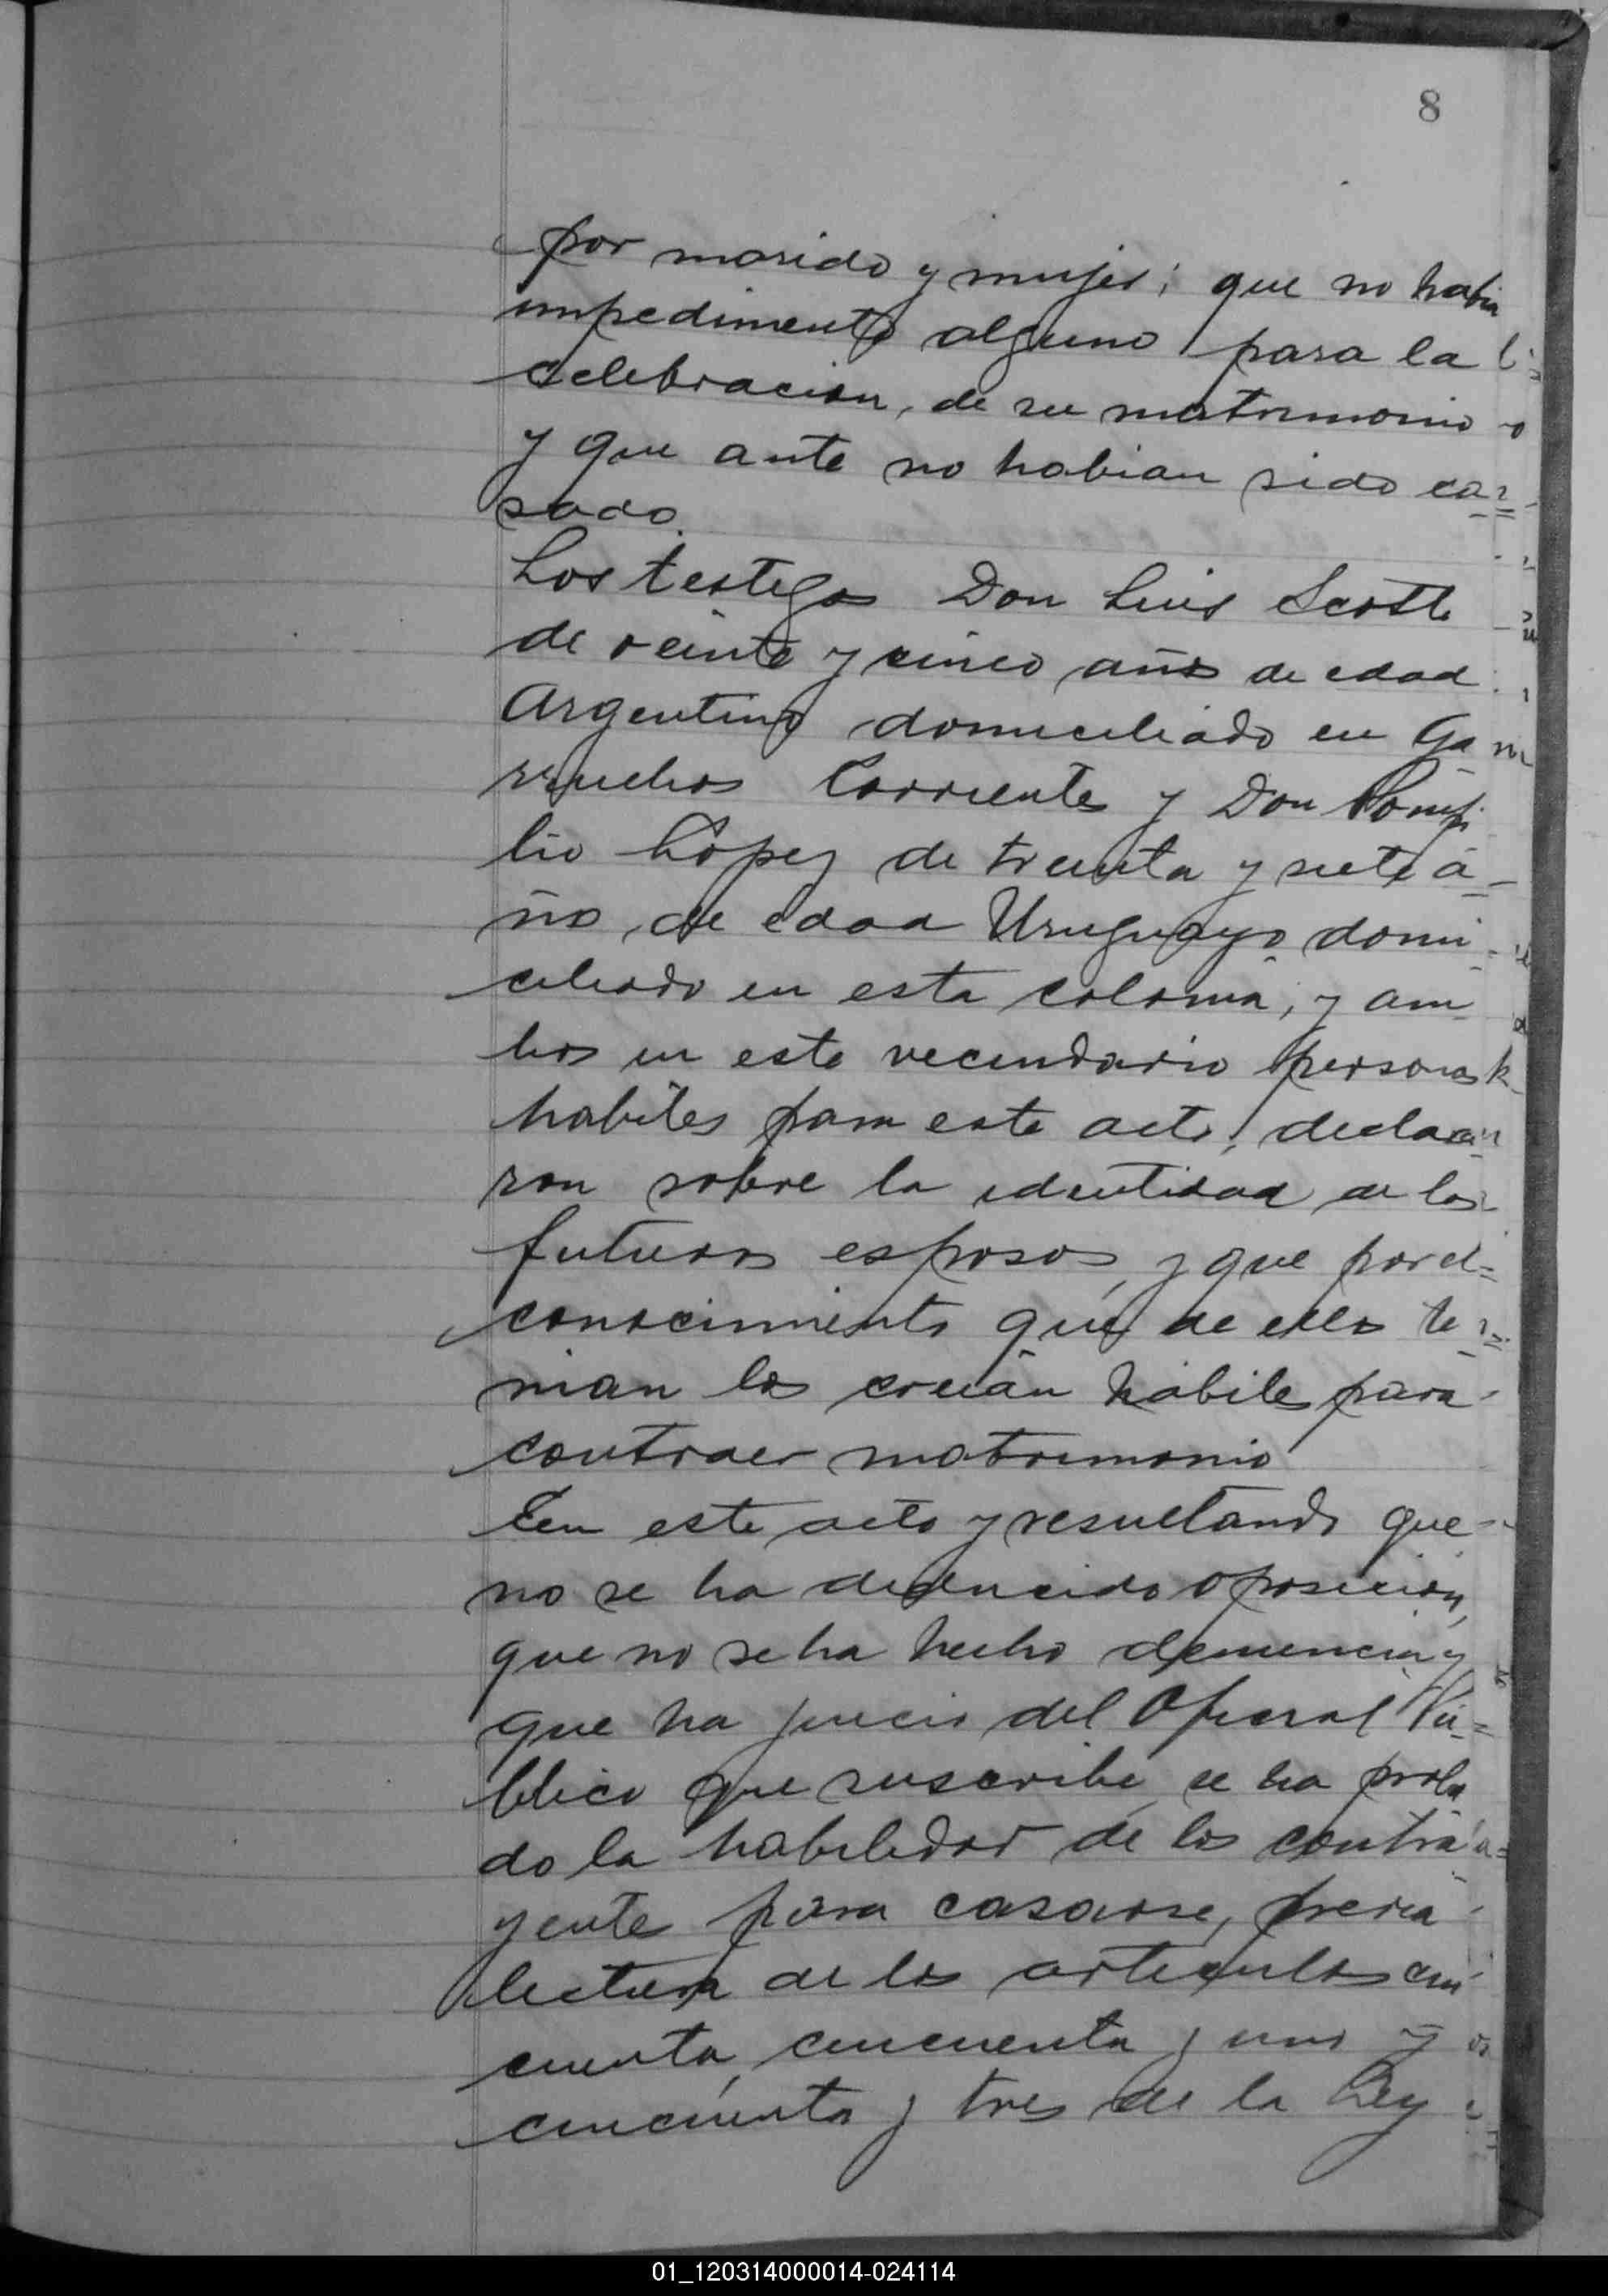 8
por marido y mujer; que no habia
impedimento alguno para la
celebracion, de su matrimonio
y que ante no habian sido ca=
sado.
Los testigos Don Luis Scotto
de veinte y cinco años de edad
Argentino domiciliado en Ga
rruchos Corrientes y Don Pompi
lio López de treinta y siete a-
ño, de edad Uruguayo domi-
ciliado en esta colonia, y am
bos en este vecindario personas
habiles para este acto, declara
ron sobre la identidad de los
futuros esposos, y que por el
conocimiento que de ellos te
nian los creian habiles para
contraer matrimonio
En este acto y resultando que
no se ha deducido oposicion,
que no se ha hecho denuncia y
que ha juicio del Oficial Pú=
blico que suscribe se ha proba
do la habilidad de los contra
yente para casarse, previa
lectura de los articulos cin
cuenta, cincuenta y uno y
cincuenta y tres de la Ley
01_120314000014-024114